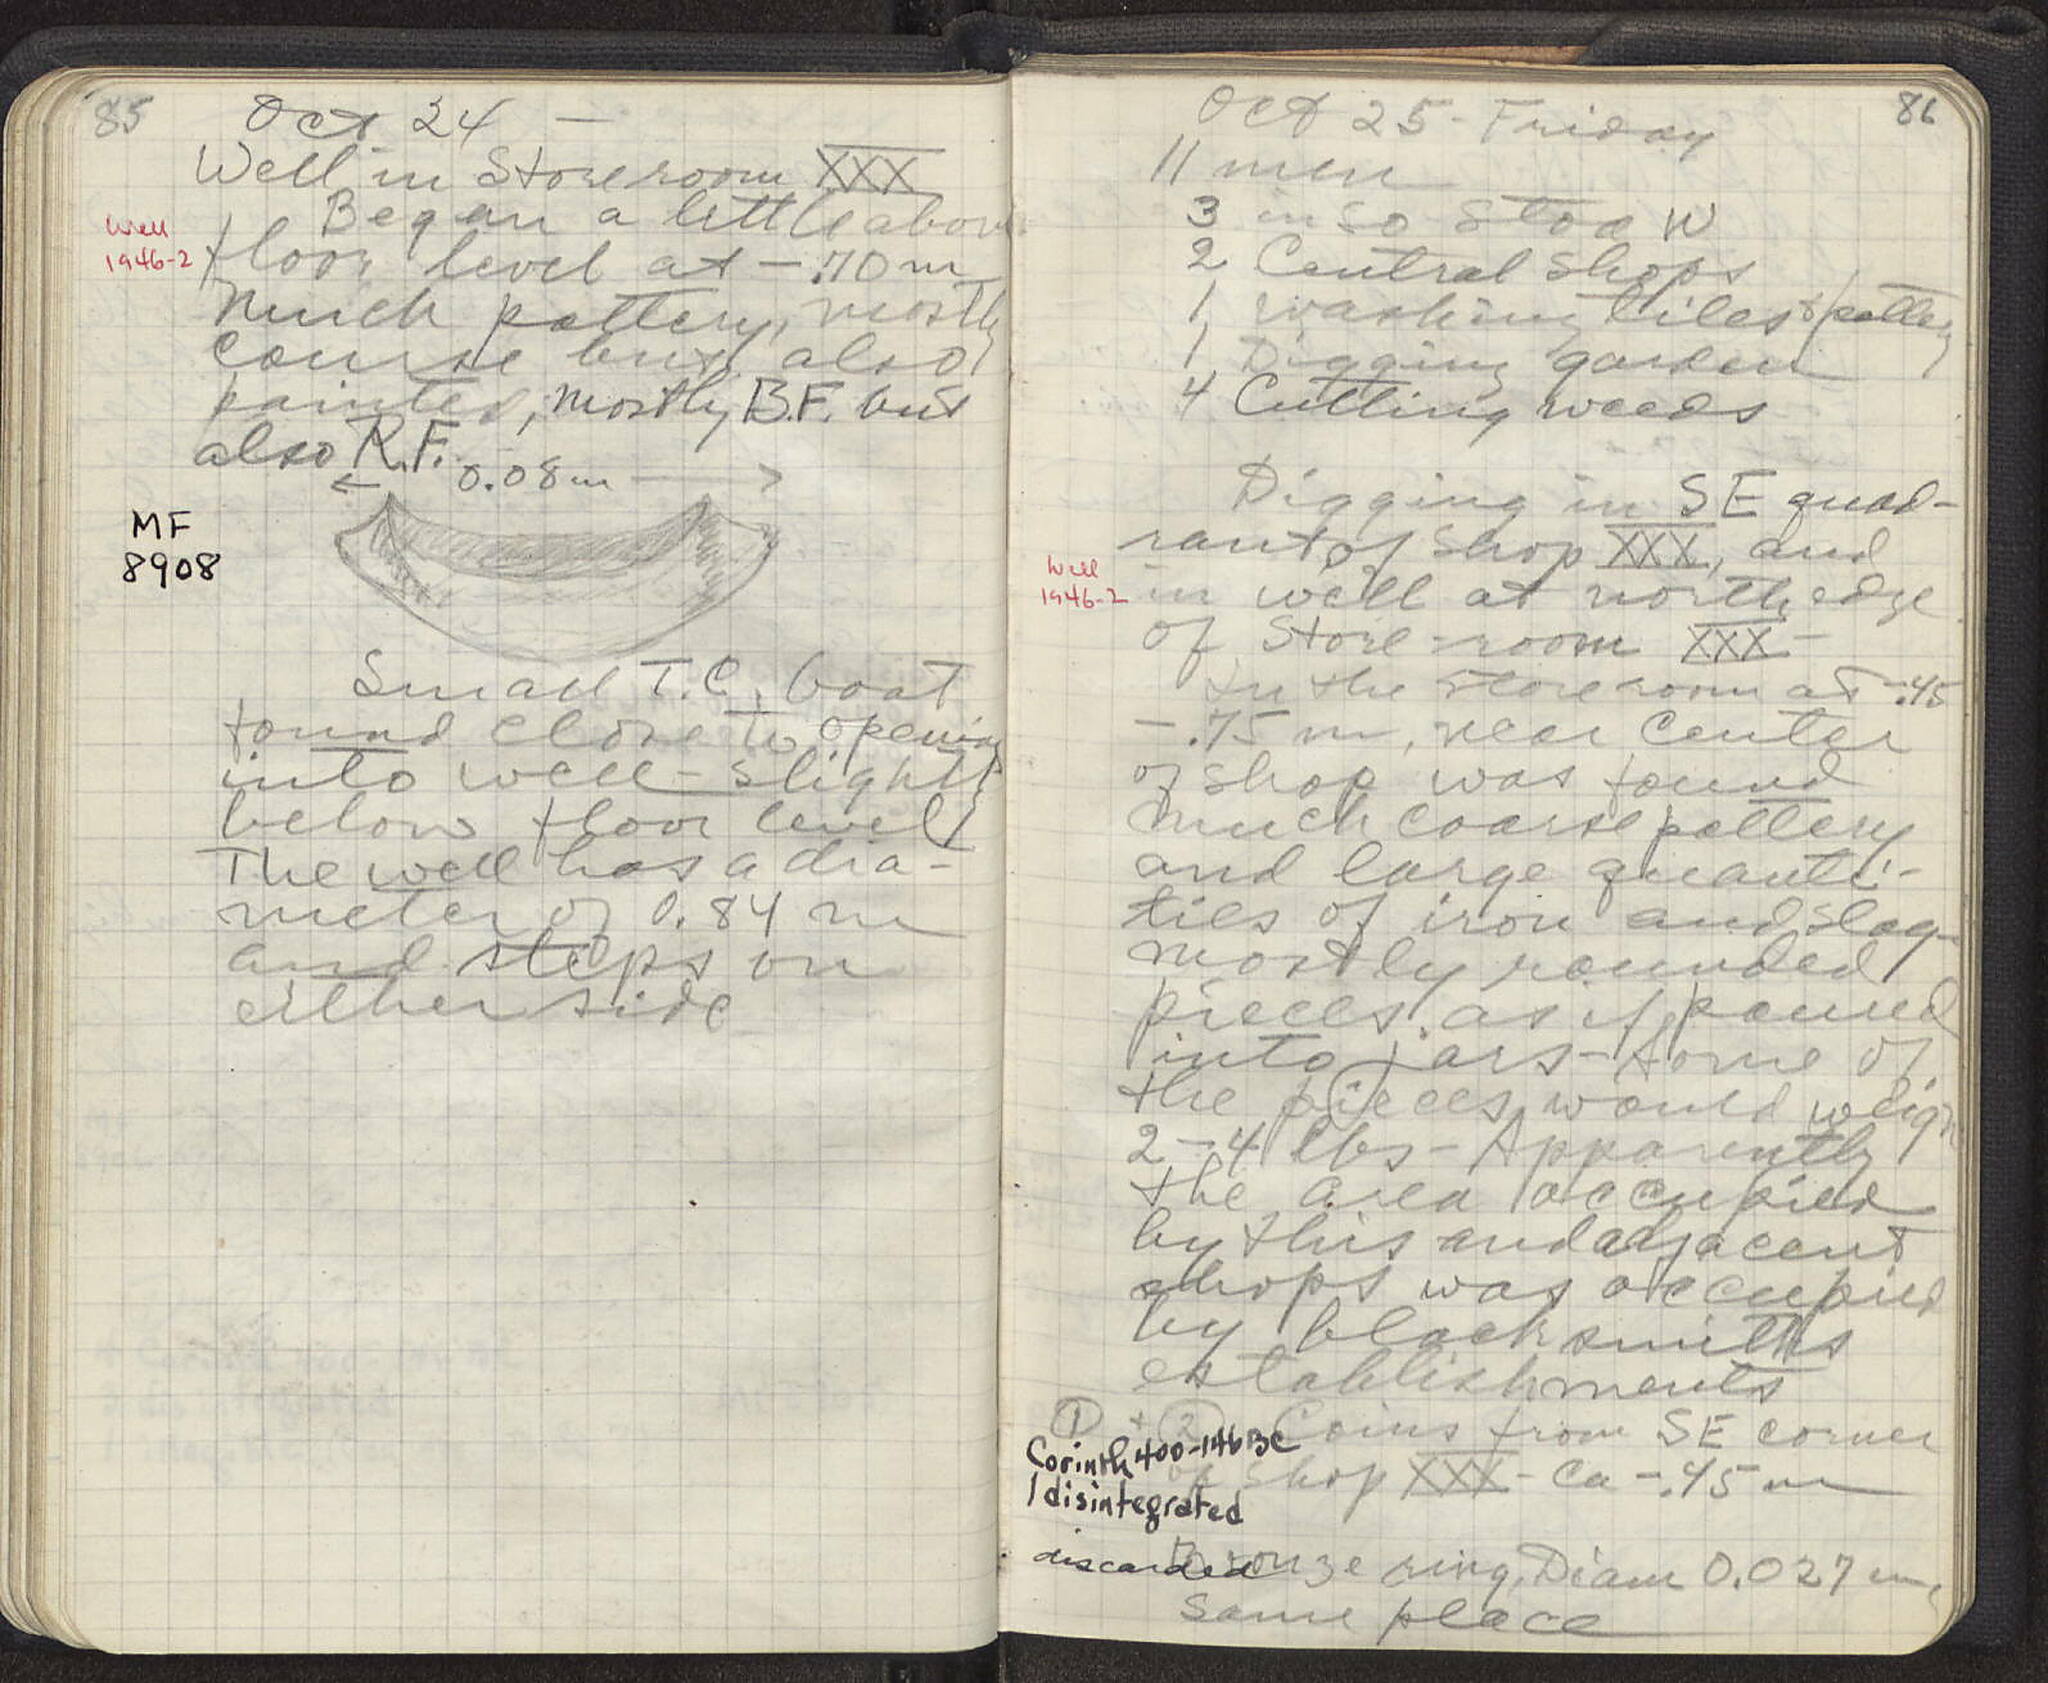 85
Oct 24 —
Well in Storeroom XXX
Began a little above
Well
1946-2
floor level at -.70 m
Much pottery, mostly
course but also
painted, mostly B.F. but
also R.F.
← 0.08 m →
MF
8908
Small T.C. boat
found close to opening
into well - slightly
below floor level
The well has a dia-
meter of 0.84 m
and steps on
either side
86
Oct 25 - Friday
11 men
3 in So Stoa W
2 Central Shops
1 washing tiles + pottery
1 Digging garden
4 Cutting weeds
Digging in SE quad-
rant of Shop XXX, and
Well
1946-2
in well at north edge
of Store-room XXX -
In the storeroom at -.45
-.75 m, near center
of shop was found
much coarse pottery
and large quanti-
ties of iron and slag -
mostly rounded
pieces as if poured
into jars - Some of
the pieces would weigh
2 - 4 lbs - Apparently
the area occupied
by this and adjacent
shops was occupied
by blacksmiths
establishments
① + ② Coins from SE corner
Corinth 400-146 BC
of Shop XXX - Ca -.45 m
1 disintegrated
discarded
Bronze ring, Diam 0.027 m,
Same place